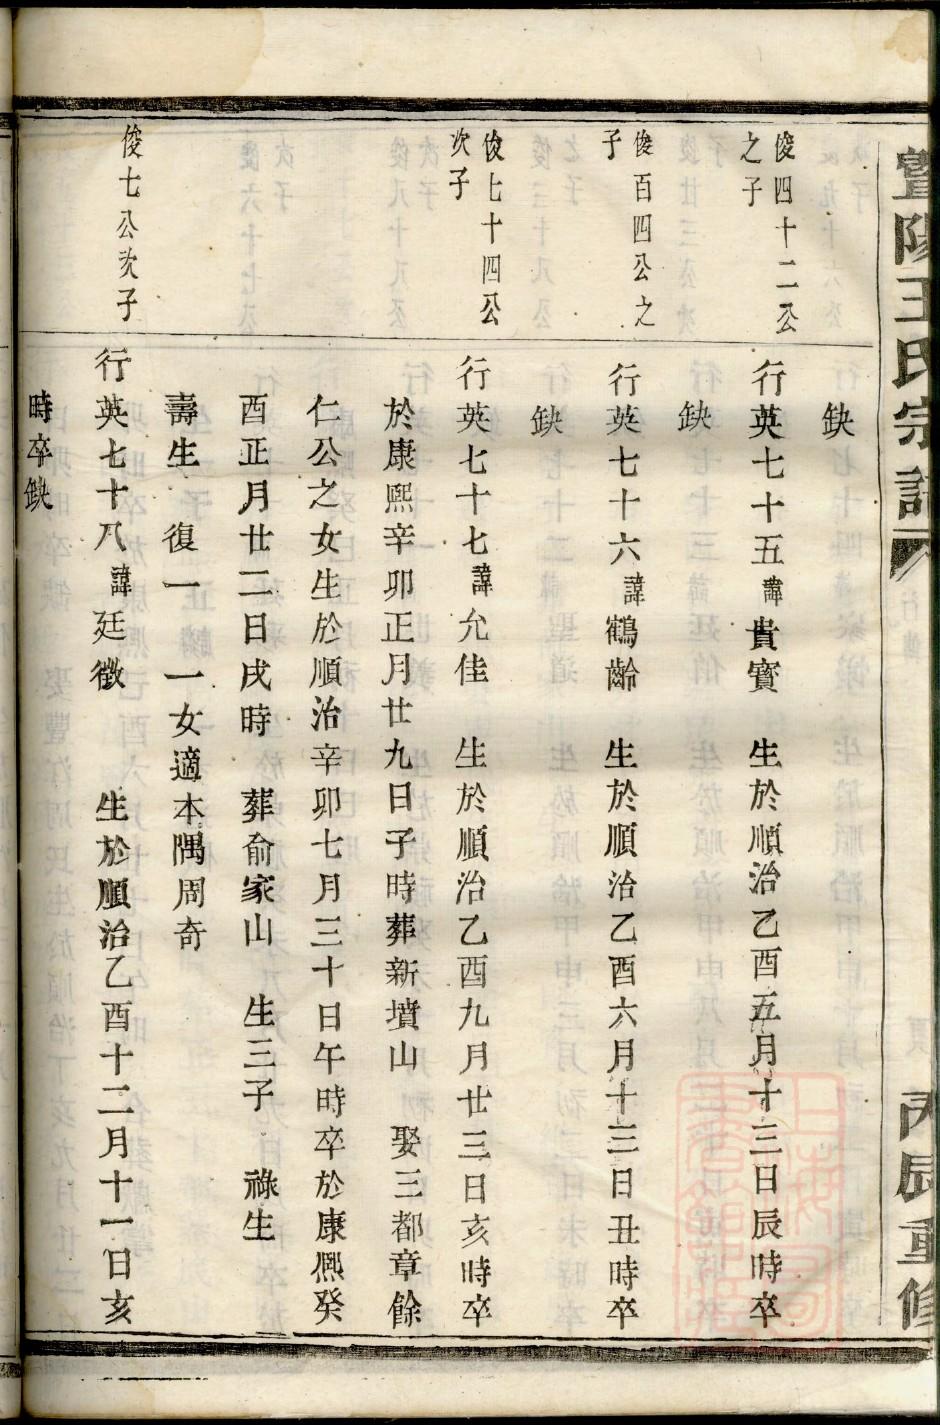 暨陽王氏宗譜
行
丙辰重修
缺
俊四十二公
之子
行英七十五諱貴寳　生於順治乙酉五月十三日辰時卒
缺
俊百四公之
子
行英七十六諱鶴齡　生於順治乙酉六月十三日丑時卒
缺
俊七十四公
次子
行英七十七諱允佳　生於順治乙酉九月廿三日亥時卒
於康熙辛卯正月廿九日子時葬新墳山　娶三都章餘
仁公之女生於順治辛卯七月三十日午時卒於康熙癸
酉正月廿二日戌時　葬俞家山　生三子　祿生
壽生　復一　一女適本隅周奇
俊七公次子
行英七十八諱廷徵　生於順治乙酉十二月十一日亥
時卒缺